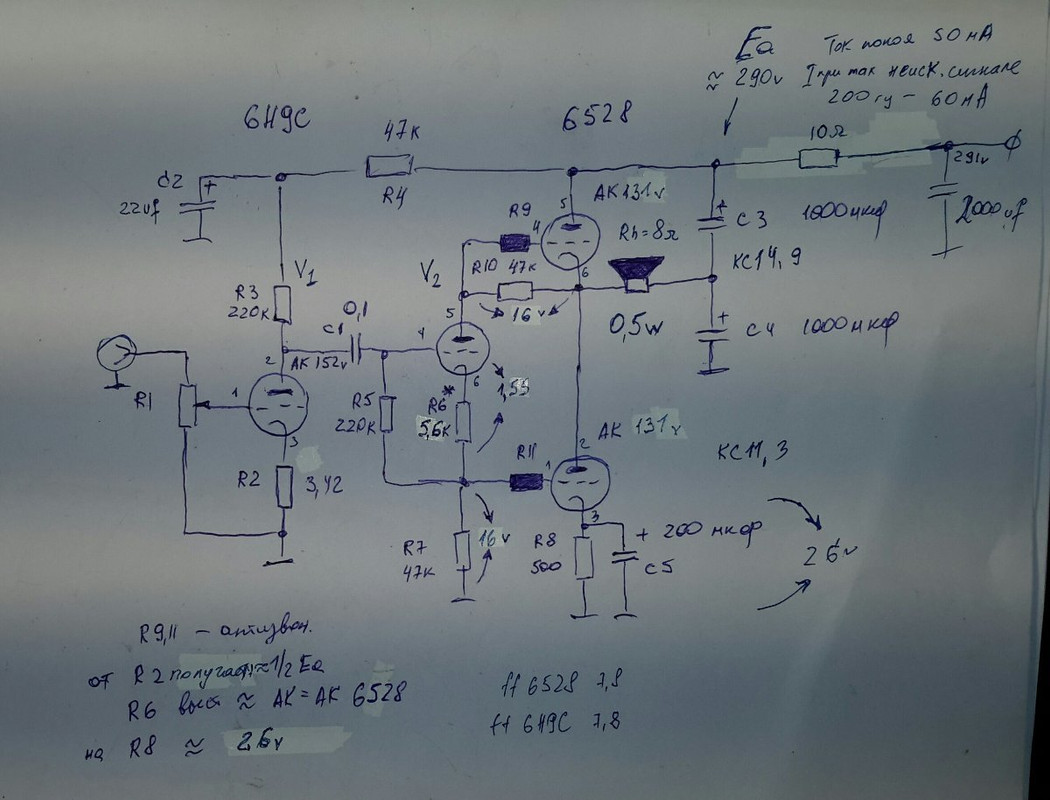 Ea
≈ 290v
Ток покоя 50 мА
I при мак неиск. сигнале
200 гц – 60 мА
6H9C
47к
R4
6528
10Ω
291v
C2
+
22uf
V1
R3
220к
0,1
C1
2
АК 152v
R1
1
3
R2
3,42
5
АК 131v
R9
4
R10 47к
6
16v
Rн=8Ω
0,5w
+
C3 1000 мкф
КС 14,9
2000uf
+
C4 1000 мкф
V2
5
4
6
*
R6
5,6к
1,55
R5
220к
R11
1
АК 131v
2
3
КС 11,3
R7
47к
16v
R8
500
+ 200 мкф
C5
26v
R9,11 – антизвон.
от R2 получаем ≈ 1/2 Ea
R6 выст ≈ АК = АК 6528
на R8 ≈ 26v
ff 6528 7,8
ff 6H9C 7,8